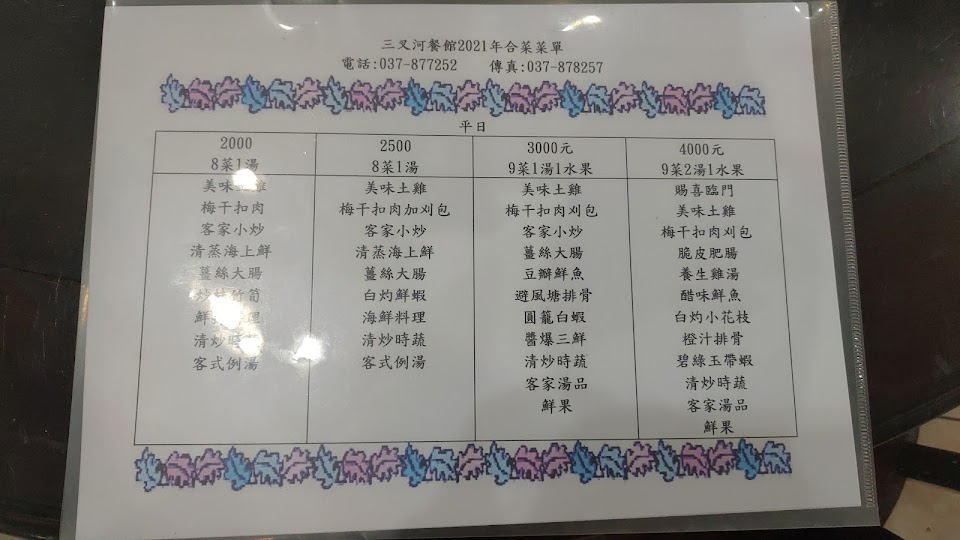 三叉河餐館2021年合菜菜單
電話:037-877252 傳真:037-878257
平日
2000 2500 3000元 4000元
8菜1湯 8菜1湯 9菜1湯1水果 9菜2湯1水果
美味 雞 美味土雞 美味土雞 賜喜臨門
梅干扣肉 梅干扣肉加刈包 梅干扣肉刈包 美味土雞
客家小炒 客家小炒 客家小炒 梅干扣肉刈包
清蒸海上鮮 清蒸海上鮮 薑絲大腸 脆皮肥腸
薑絲大腸 薑絲大腸 豆瓣鮮魚 養生雞湯
竹筍 白灼鮮蝦 避風塘排骨 醋味鮮魚
鮮 海鮮料理 圓籠白蝦 白灼小花枝
清炒時 清炒時蔬 醬爆三鮮 橙汁排骨
客式例湯 客式例湯 清炒時蔬 碧綠玉帶蝦
客家湯品 清炒時蔬
鮮果 客家湯品
鮮果